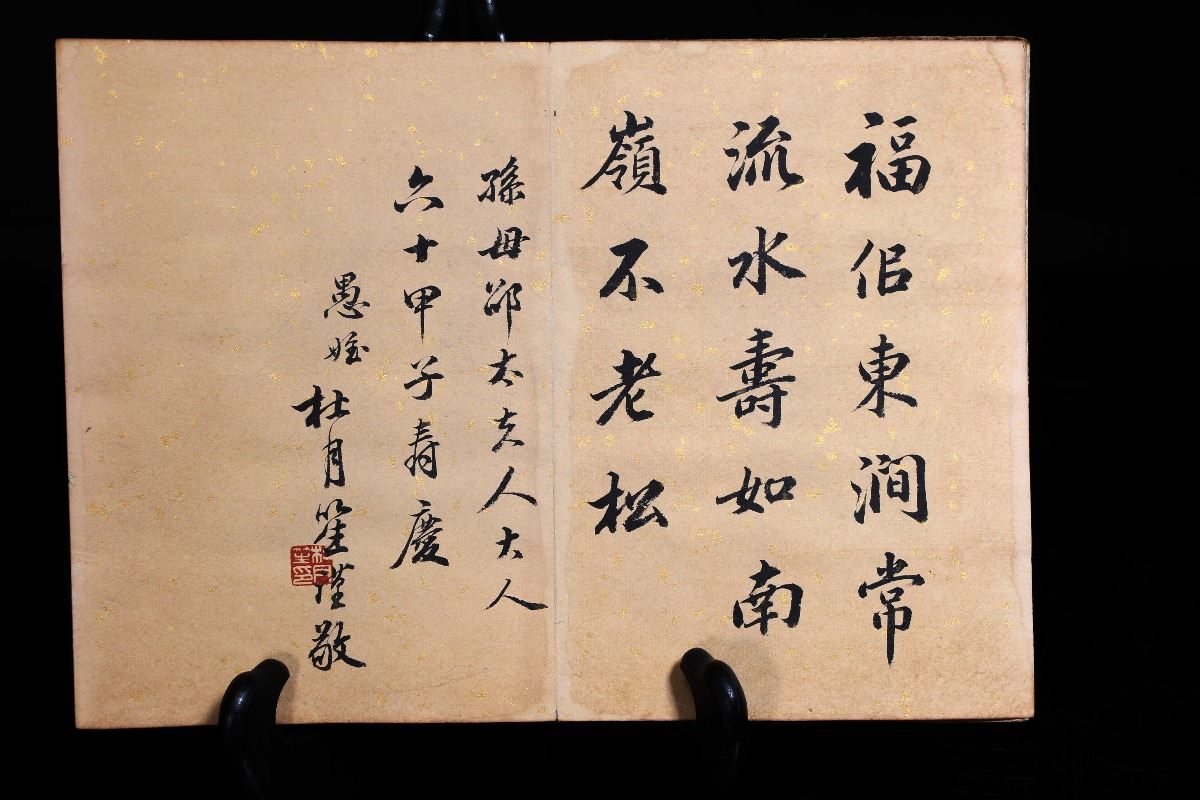 福佀東澗常
流水壽如南
嶺不老松
孫母邵太夫人大人
六十甲子壽慶
愚姪杜月笙謹敬
杜月笙印